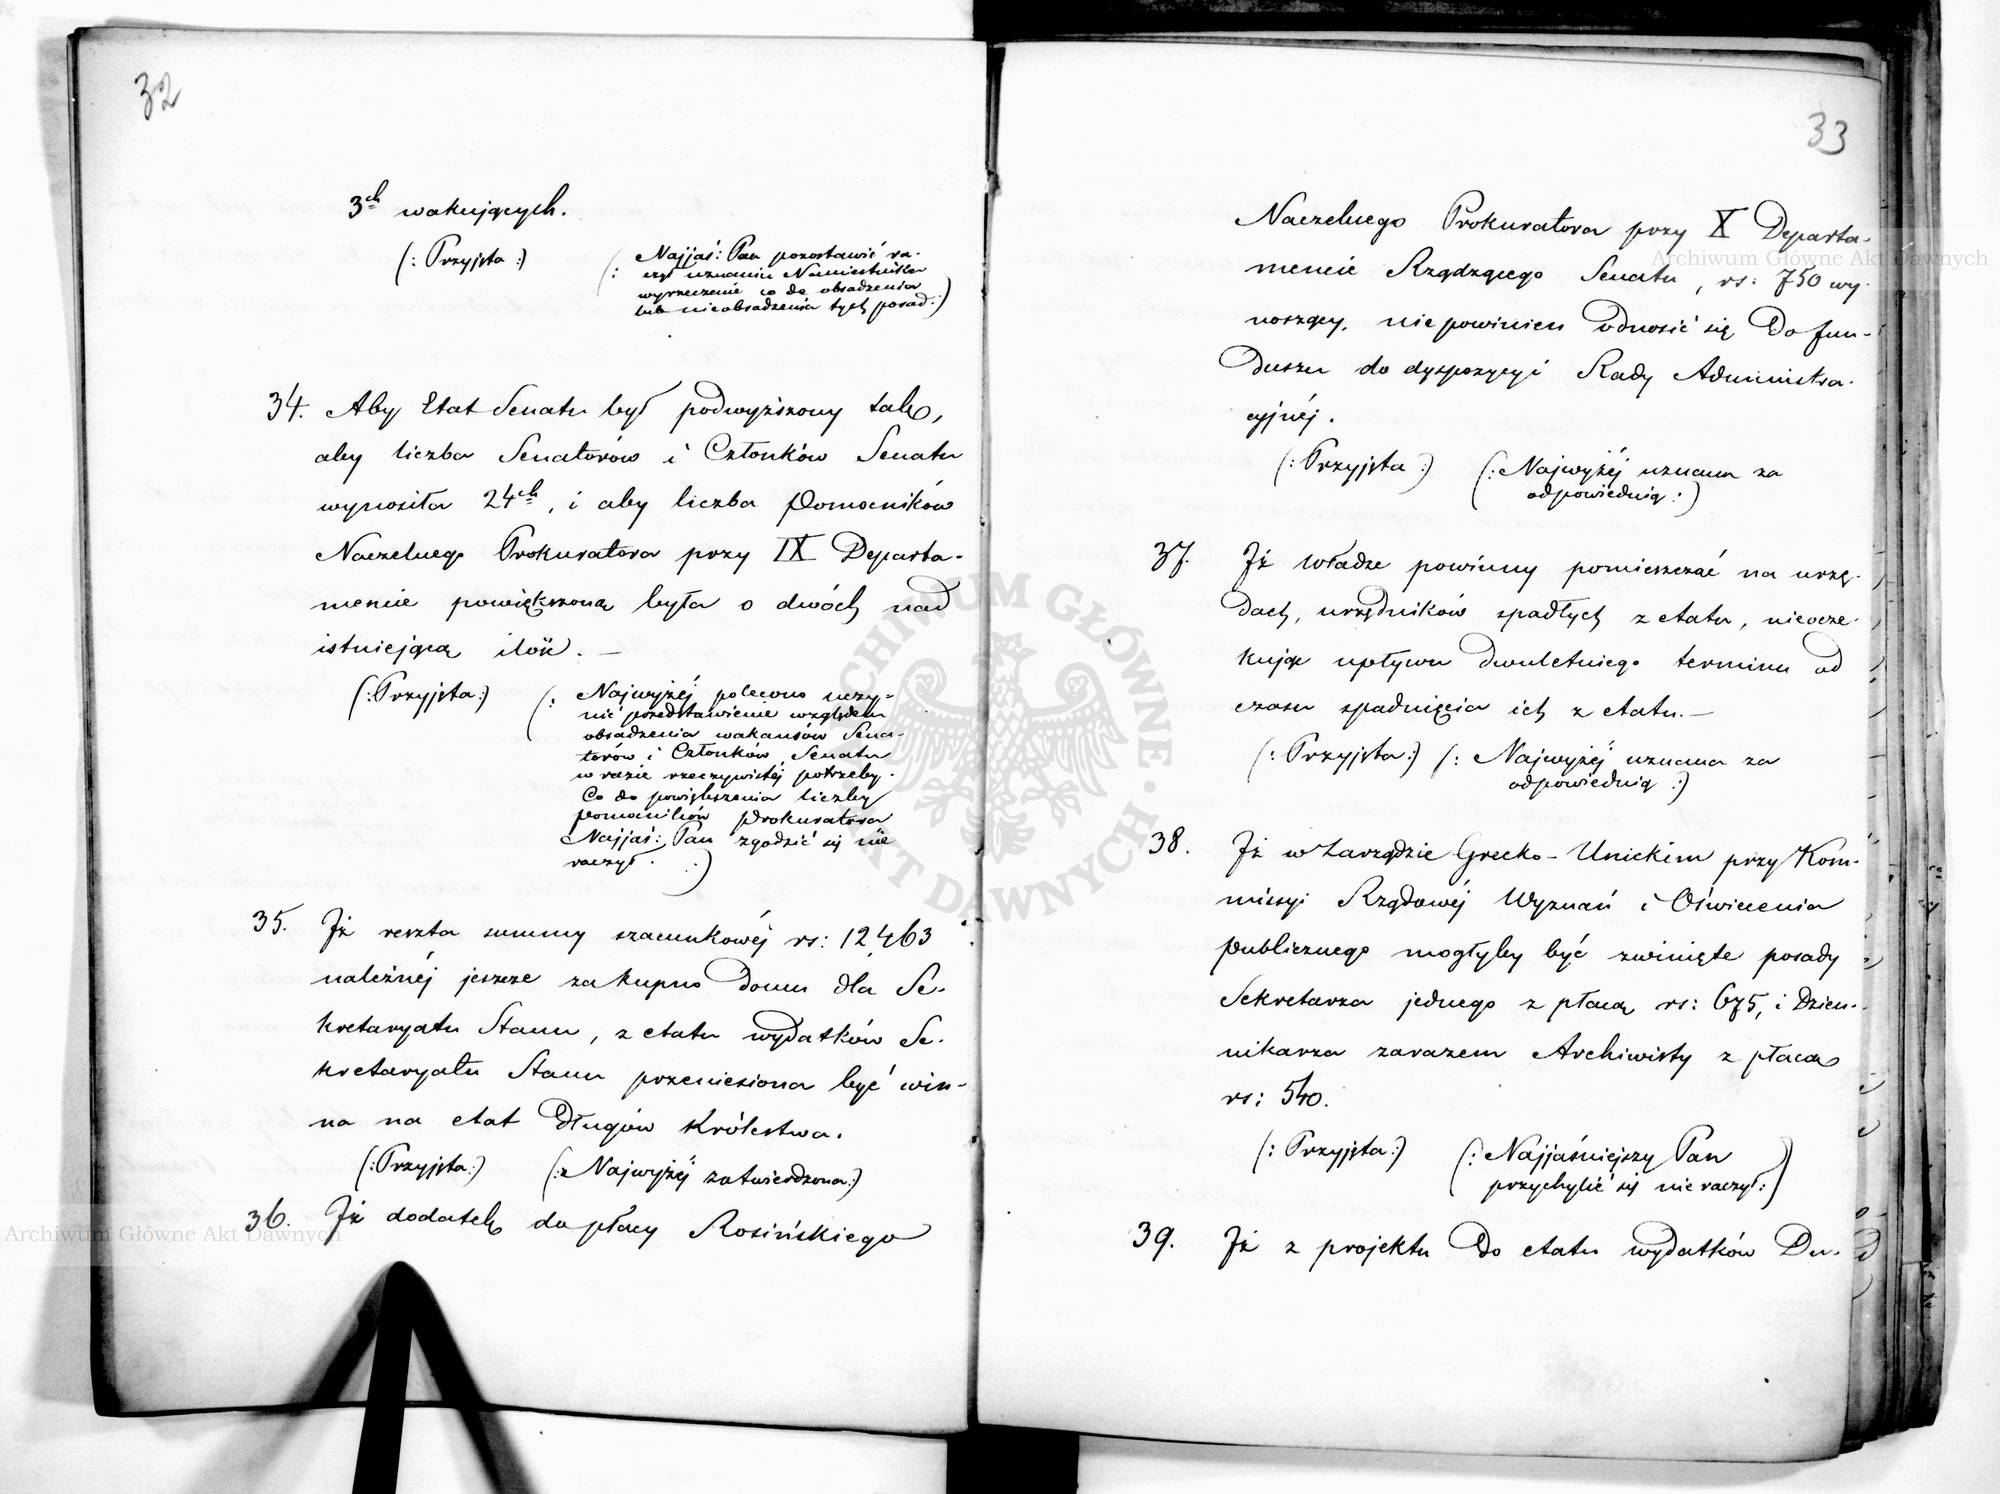 32
3ch wakujących.
(: Przyjęta :)
(: Najjaś: Pan pozostawić ra-
czył uznaniu Namiestnika
wyrzeczenie co do obsadzenia
lub nieobsadzenia tych posad :)
34. Aby Etat Senatu był podwyższony tak,
aby liczba Senatorów i Członków Senatu
wynosiła 24ch, i aby liczba Pomocników
Naczelnego Prokuratora przy IX Departa-
mencie powiększoną była o dwóch nad
istniejącą ilość. —
(: Przyjęta :)
(: Najwyżéj polecono uczy-
nić przedstawienie względem
obsadzenia wakansów Sena-
torów i Członków Senatu
w razie rzeczywistéj potrzeby.
Co do powiększenia liczby
pomocników Prokuratora
Najjaś: Pan zgodzić się nie
raczył. :)
35. Iż reszta summy szacunkowéj rs: 12,463
należnéj jeszcze za kupno domu dla Se-
kretaryatu Stanu, z etatu wydatków Se-
kretaryatu Stanu przeniesiona być win-
na na etat Długów Królestwa.
(: Przyjęta :) (: Najwyżéj zatwierdzona :)
36. Iż dodatek do płacy Rosińskiego
33
Naczelnego Prokuratora przy X Departa-
mencie Rządzącego Senatu, rs: 750 wy-
noszący, nie powinien odnosić się do fun-
duszu do dyspozycyi Rady Administra-
cyjnéj.
(: Przyjęta :) (: Najwyżéj uznana za
odpowiednią :)
37. Iż władze powinny pomieszczać na urzę-
dach, urzędników spadłych z etatu, nieocze-
kując upływu dwuletniego terminu od
czasu spadnięcia ich z etatu. —
(: Przyjęta :) (: Najwyżéj uznana za
odpowiednią :)
38. Iż w Zarządzie Grecko-Unickim przy Kom-
missyi Rządowéj Wyznań i Oświecenia
publicznego mogłyby być zwinięte posady
Sekretarza jednego z płacą rs: 675, i Dzien-
nikarza zarazem Archiwisty z płacą
rs: 540.
(: Przyjęta :) (: Najjaśniejszy Pan
przychylić się nie raczył :)
39. Iż z projektu do etatu wydatków Du-
Archiwum Główne Akt Dawnych
Archiwum Główne Akt Dawnych
ARCHIWUM GŁÓWNE · AKT DAWNYCH ·